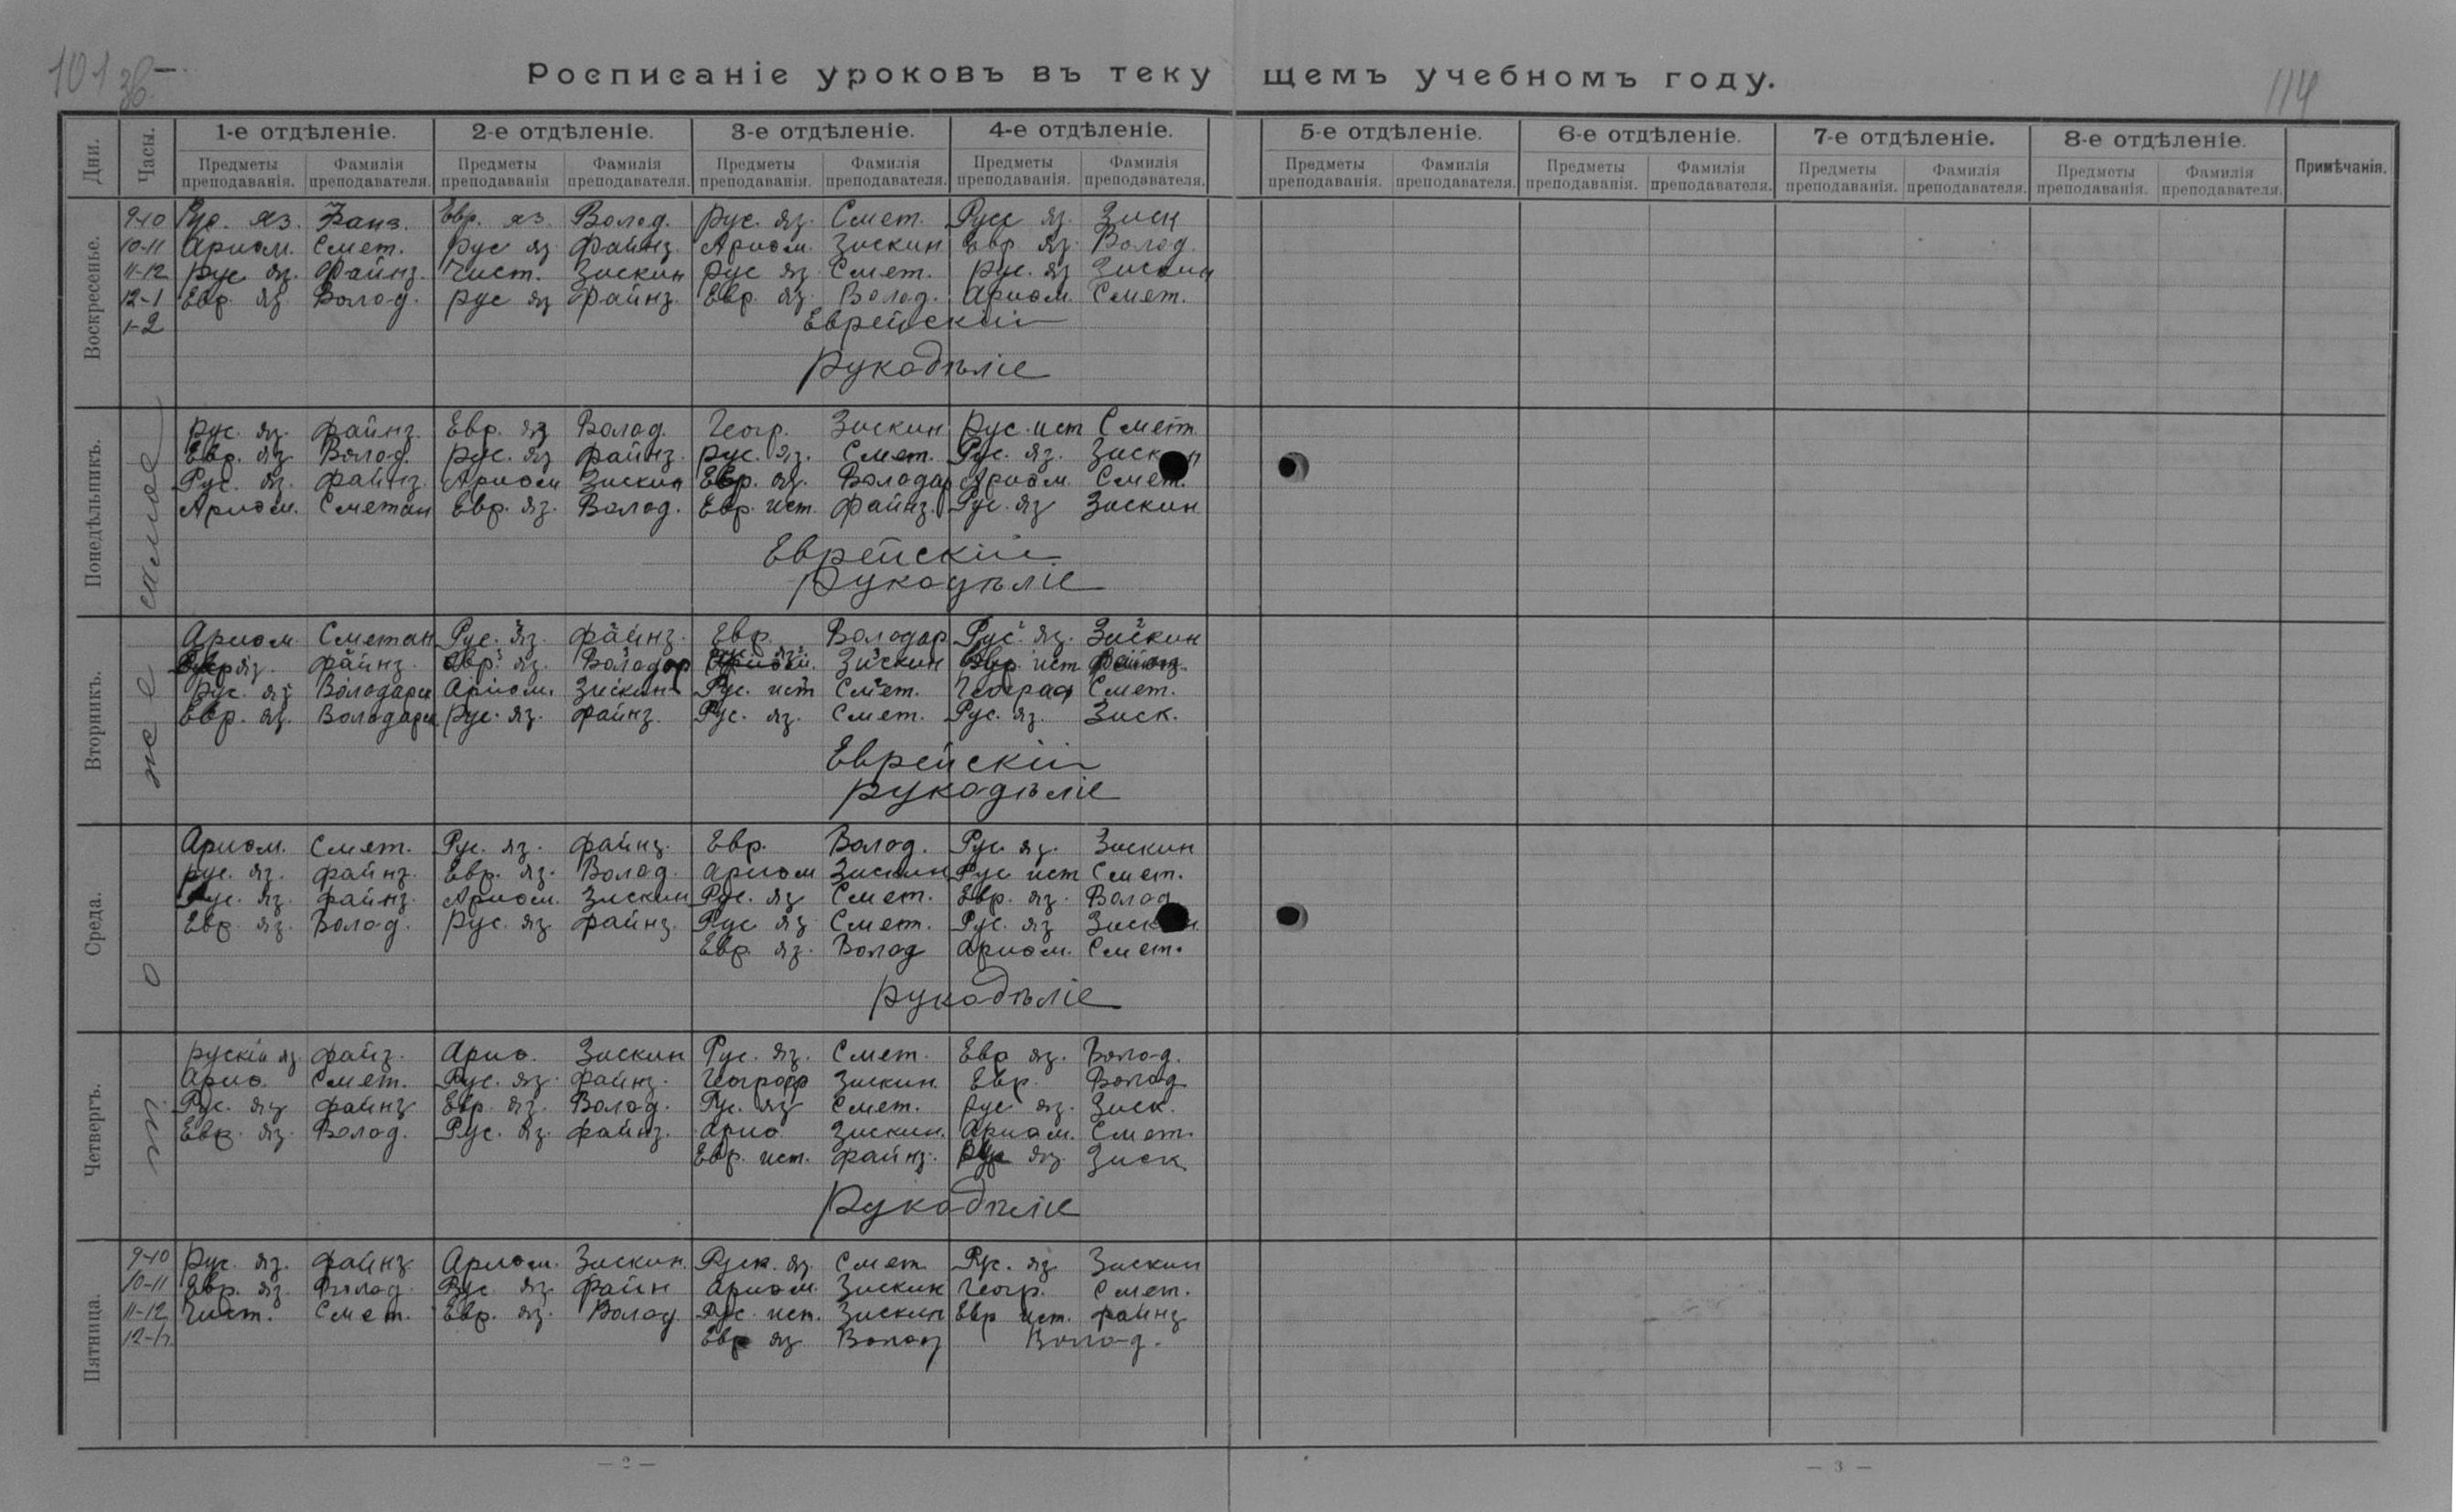 101 зв.
114
Росписаніе уроковъ въ текущемъ учебномъ году.
Дни. Часы. 1-е отдѣленіе. 2-е отдѣленіе. 3-е отдѣленіе. 4-е отдѣленіе. 5-е отдѣленіе. 6-е отдѣленіе. 7-е отдѣленіе. 8-е отдѣленіе. Примѣчанія.
Предметы преподаванія. Фамилія преподавателя. Предметы преподаванія Фамилія преподавателя. Предметы преподаванія. Фамилія преподавателя. Предметы преподаванія. Фамилія преподавателя. Предметы преподаванія. Фамилія преподавателя. Предметы преподаванія. Фамилія преподавателя. Предметы преподаванія. Фамилія преподавателя. Предметы преподаванія. Фамилія преподавателя.
Воскресенье.
9-10 Рус. яз. Файнз. Евр. яз. Волод. Рус. яз. Смет. Русс яз. Зиск
10-11 Ариѳм. Смет. Рус яз Файнз. Ариѳм. Зискин Евр яз. Волод.
11-12 Рус яз. Файнз. Чист. Зискин Рус яз. Смет. Рус. яз Зискин
12-1 Евр. яз. Волод. Рус яз Файнз. Евр. яз. Волод. Ариѳм. Смет.
1-2 Еврейскій
Рукодѣліе
Понедѣльникъ.
Рус. яз. Файнз. Евр. яз Волод. Геогр. Зискин Рус. ист Смет.
Евр. яз Волод. Рус. яз Файнз. Рус. яз. Смет. Рус. яз.
Рус. яз. Файнз. Ариѳм Зискин Евр. яз. Володар Ариѳм. Смет.
Ариѳм. Сметан Евр. яз. Волод. Евр. ист. Файнз. Рус. яз Зискин
Еврейскій
Рукодѣліе
Вторникъ.
Ариѳм. Сметан Рус. яз. Файнз. Евр. Володар Рус. яз. Зискин
яз. Файнз. Евр. яз. Володар Зискин ист
Рус. яз Володарск Ариѳм. Зискин Рус. ист Смет. Географ Смет.
Евр. яз. Володарск Рус. яз. Файнз. Рус. яз. Смет. Рус. яз. Зиск.
Еврейскій
Рукодѣліе
Среда.
Ариѳм. Смет. Рус. яз. Файнз. Евр. Волод. Рус. яз. Зискин
Рус. яз. Файнз. Евр. яз. Волод. Ариѳм Зискин Рус ист Смет.
Рус. яз. Файнз. Ариѳм. Зискин Рус. яз Смет. Евр. яз. Волод
Евр. яз. Волод. Рус. яз Файнз. Рус яз Смет. Рус. яз
Евр. яз. Волод Ариѳм. Смет.
Рукодѣліе
Четвергъ.
Рускій яз. Файз. Ариѳ. Зискин Рус. яз. Смет. Евр яз. Волод.
Ариѳ. Смет. Рус. яз. Файнз. Географ Зискин. Евр. Волод
Рус. яз Файнз Евр. яз. Волод. Рус. яз Смет. Рус яз. Зиск.
Евр. яз. Волод. Рус. яз. Файнз. Ариѳ Зискин. Ариѳм. Смет.
Евр. ист. Файнз. яз. Зиск
Рукодѣліе
то же самое
Пятница.
9-10 Рус. яз. Файнз Ариѳм. Зискин. Руск. яз. Смет Рус. яз Зискин
10-11 Евр. яз. Волод. Рус яз Файн Ариѳм. Зискин Геогр. Смет.
11-12 Чист. Смет. Евр. яз. Волод. Рус. ист. Зискин Евр ист. Файнз
12-1 Евр яз Волод Волод.
— 2 —
— 3 —